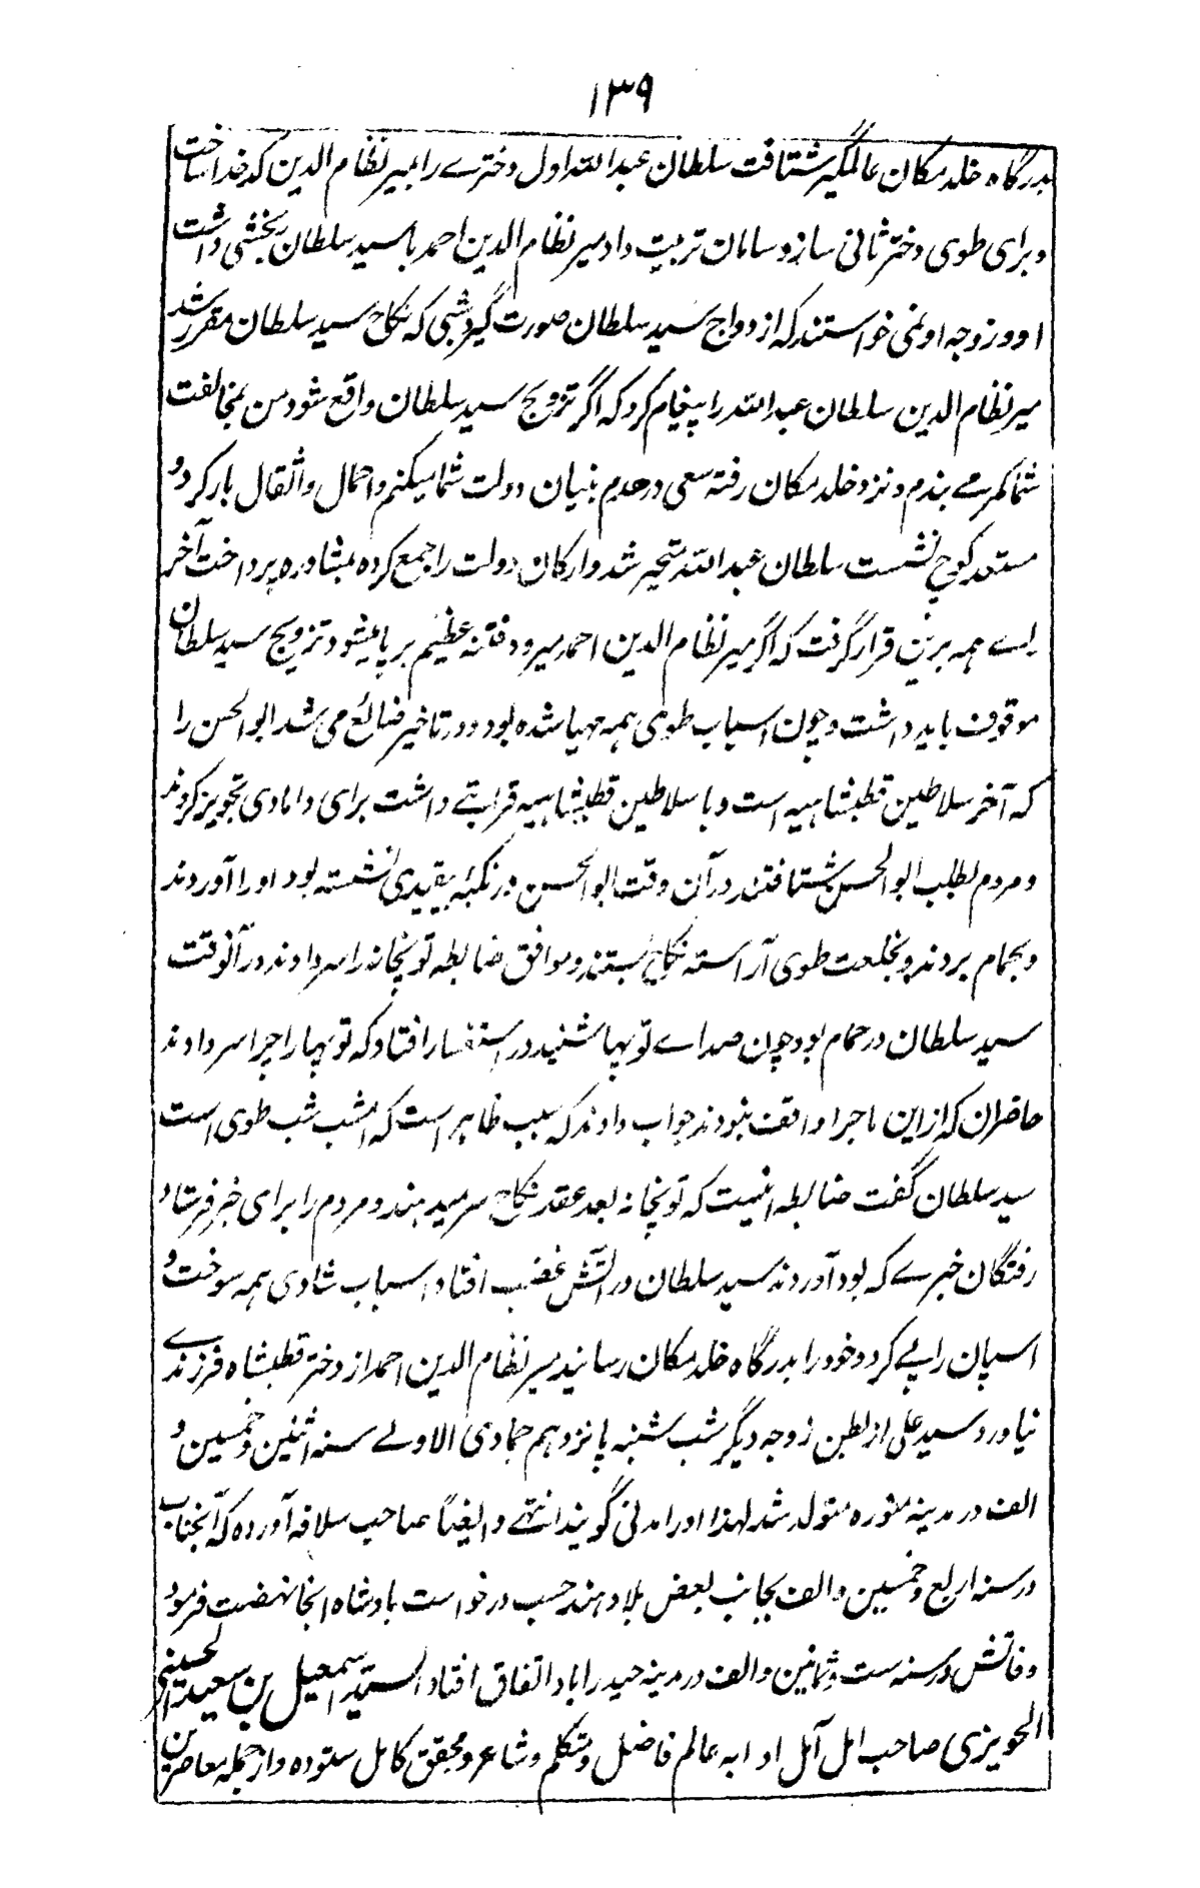 ۱۳۹
بدرگاه خلد مکان عالمگیر شتافت سلطان عبدالله اول دخترے را بمیر نظام الدین کدخدا ساخت
و برای طوی دختر ثانی ساز و سامان تربیت داد میر نظام الدین احمد با سید سلطان بخشی داشت
او و زوجه او نمی خواستند که ازدواج سید سلطان صورت گیرد شبی که نکاح سید سلطان مقرر شد
میر نظام الدین سلطان عبدالله را پیغام کرد که اگر تزویج سید سلطان واقع شود من بمخالفت
شما کمر مے بندم و نزد خلد مکان رفته سعی در هدم بنیان دولت شما میکنم و احمال و اثقال بار کرد و
مستعد کوچ نشست سلطان عبدالله متحیر شد و ارکان دولت را جمع کرده بمشاوره پرداخت آخر
راے همه برین قرار گرفت که اگر میر نظام الدین احمد میرود فتنه عظیم برپا میشود تزویج سید سلطان
موقوف باید داشت و چون اسباب طوی همه مهیا شده بود و در تاخیر ضائع می شد ابوالحسن را
که آخر سلاطین قطبشاهیه است و با سلاطین قطبشاهیه قرابتے داشت برای دامادی تجویز کردند
و مردم بطلب ابوالحسن شتافتند در آن وقت ابوالحسن در تکیه بقیدی نشسته بود او را آوردند
و بحمام بردند و بخلعت طوی آراسته نکاح بستند و موافق ضابطه توپخانه را سر دادند در آنوقت
سید سلطان در حمام بود چون صداے توپها شنید در استفسار افتاد که توپها را چرا سر دادند
حاضران که از این ماجرا واقف نبودند جواب دادند که سبب ظاهر است که امشب شب طوی است
سید سلطان گفت ضابطه اینست که توپخانه بعد عقد نکاح سر میدهند و مردم را برای خبر فرستاد
رفتگان خبرے که بود آوردند سید سلطان در آتش غضب افتاد اسباب شادی همه سوخت و
اسپان را پے کرد و خود را بدرگاه خلد مکان رسانید میر نظام الدین احمد از دختر قطبشاه فرزندے
نیاورد و سید علی از بطن زوجه دیگر شب شنبه پانزدهم جمادی الاولے سنه اثنین و خمسین و
الف در مدینه منوره متولد شد لهذا او را مدنی گویند انتهے و ایضاً صاحب سلافه آورده که آنجناب
در سنه اربع و خمسین و الف بجانب بعض بلاد هند حسب درخواست بادشاه انجا نهضت فرمود
و فاتش در سنه ست و ثمانین و الف در مدینه حیدراباد اتفاق افتاد السید اسمعیل بن سعید الحسینی
الحویزی صاحب امل آمل او ابه عالم فاضل و متکلم و شاعر و محقق کامل ستوده و از جمله معاصرین